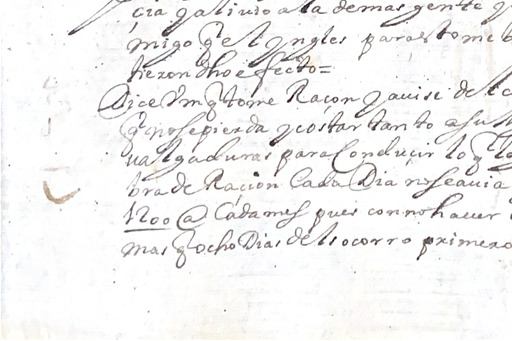 cia y alivio a la demas gente
migo q̃ el yngles para esto me
hizeron dho efecto=
Dice Vm q̃ tome Raçon y avise de
q̃ no se pierda y costar tanto a su
valgaduras para Conducir lo q̃
bra de Racion Cada Dia no se avia
1200 @ Cada mes pues con no haver
mas q̃ ocho Dias del socorro primero